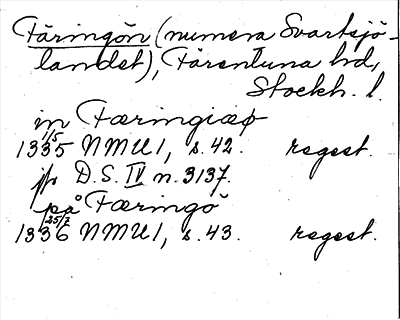 Färingön (numera Svartsjö-
landet), Färentuna hd,
Stockh. l.
in Færingiæø
1/5
1335 NMU 1, s. 42. regest.
jfr D.S. IV n. 3137.
på Færingö
25/7
1336 NMU 1, s. 43. regest.